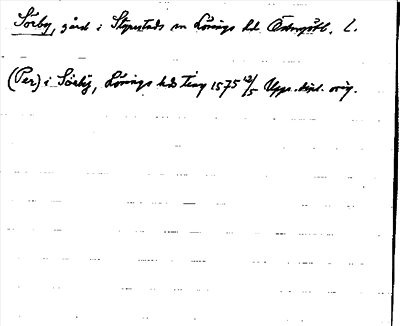 Sörby, gård i Styrestads sn Lösings hd. Östergötl. L.
(Per) i Sörby, Lösings hds Ting 1575 12/5 Upps. dipl. orig.